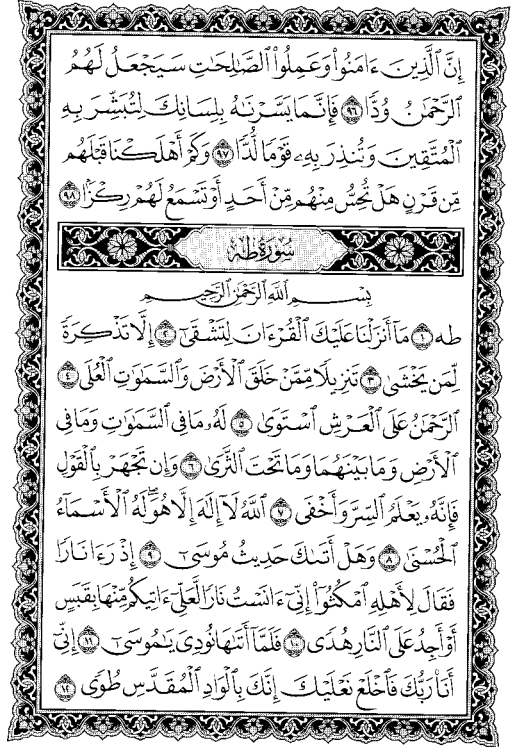 إِنَّ ٱلَّذِينَ ءَامَنُوا۟ وَعَمِلُوا۟ ٱلصَّـٰلِحَـٰتِ سَيَجْعَلُ لَهُمُ
ٱلرَّحْمَـٰنُ وُدًّا ٩٦ فَإِنَّمَا يَسَّرْنَـٰهُ بِلِسَانِكَ لِتُبَشِّرَ بِهِ
ٱلْمُتَّقِينَ وَتُنذِرَ بِهِۦ قَوْمًا لُّدًّا ٩٧ وَكَمْ أَهْلَكْنَا قَبْلَهُم
مِّن قَرْنٍ هَلْ تُحِسُّ مِنْهُم مِّنْ أَحَدٍ أَوْ تَسْمَعُ لَهُمْ رِكْزًۢا ٩٨
سُورَةُ طه
بِسْمِ ٱللَّهِ ٱلرَّحْمَـٰنِ ٱلرَّحِيمِ
طه ١ مَآ أَنزَلْنَا عَلَيْكَ ٱلْقُرْءَانَ لِتَشْقَىٰٓ ٢ إِلَّا تَذْكِرَةً
لِّمَن يَخْشَىٰ ٣ تَنزِيلًا مِّمَّنْ خَلَقَ ٱلْأَرْضَ وَٱلسَّمَـٰوَٰتِ ٱلْعُلَى ٤
ٱلرَّحْمَـٰنُ عَلَى ٱلْعَرْشِ ٱسْتَوَىٰ ٥ لَهُۥ مَا فِى ٱلسَّمَـٰوَٰتِ وَمَا فِى
ٱلْأَرْضِ وَمَا بَيْنَهُمَا وَمَا تَحْتَ ٱلثَّرَىٰ ٦ وَإِن تَجْهَرْ بِٱلْقَوْلِ
فَإِنَّهُۥ يَعْلَمُ ٱلسِّرَّ وَأَخْفَى ٧ ٱللَّهُ لَآ إِلَـٰهَ إِلَّا هُوَ ۖ لَهُ ٱلْأَسْمَآءُ
ٱلْحُسْنَىٰ ٨ وَهَلْ أَتَىٰكَ حَدِيثُ مُوسَىٰٓ ٩ إِذْ رَءَا نَارًا
فَقَالَ لِأَهْلِهِ ٱمْكُثُوٓا۟ إِنِّىٓ ءَانَسْتُ نَارًا لَّعَلِّىٓ ءَاتِيكُم مِّنْهَا بِقَبَسٍ
أَوْ أَجِدُ عَلَى ٱلنَّارِ هُدًى ١٠ فَلَمَّآ أَتَىٰهَا نُودِىَ يَـٰمُوسَىٰٓ ١١ إِنِّىٓ
أَنَا۠ رَبُّكَ فَٱخْلَعْ نَعْلَيْكَ إِنَّكَ بِٱلْوَادِ ٱلْمُقَدَّسِ طُوًى ١٢